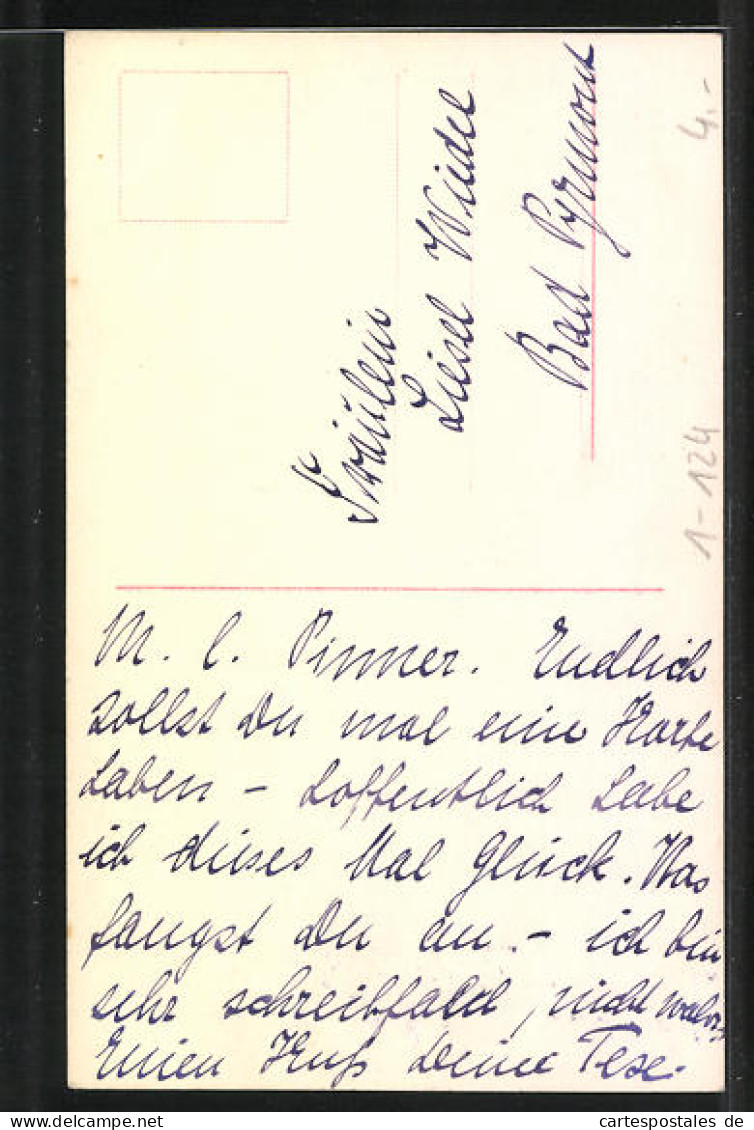 Fräulein
Liesel Wiedel
Bad Pyrmont
4.-
1-124
M. l. Pimmer. Endlich
sollst Du mal eine Karte
haben - hoffentlich habe
ich dieses Mal Glück. Was
fangst Du an. - ich bin
sehr schreibfaul, nicht wahr.
Einen Kuß Deine Tese.
delcampe.net
cartespostales de